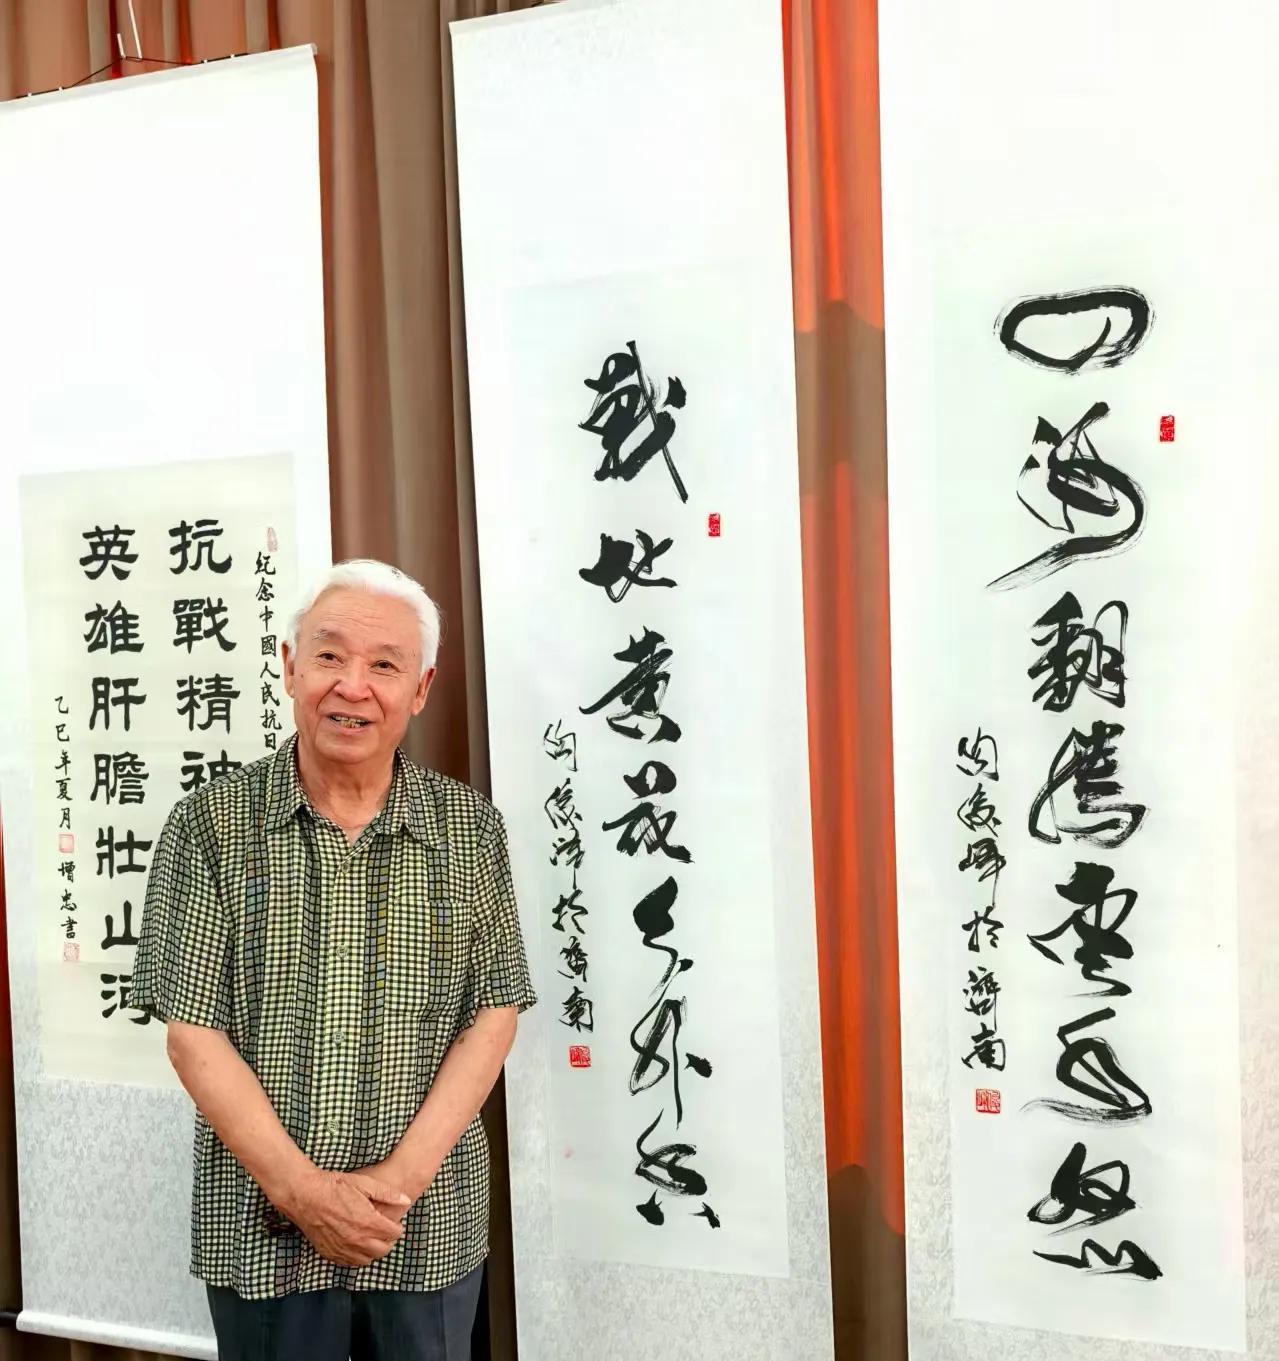 四海翻騰雲水怒
於濟南
戰地黄花分外香
於濟南
紀念中國人民抗日
抗戰精神
英雄肝膽壯山河
乙巳年夏月 增忠書